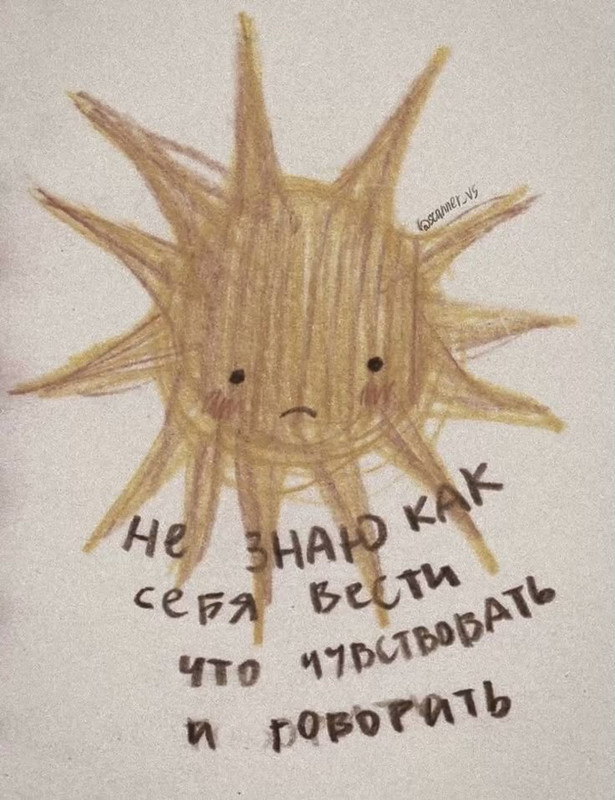 @scanner_vs
не знаю как
себя вести
что чувствовать
и говорить